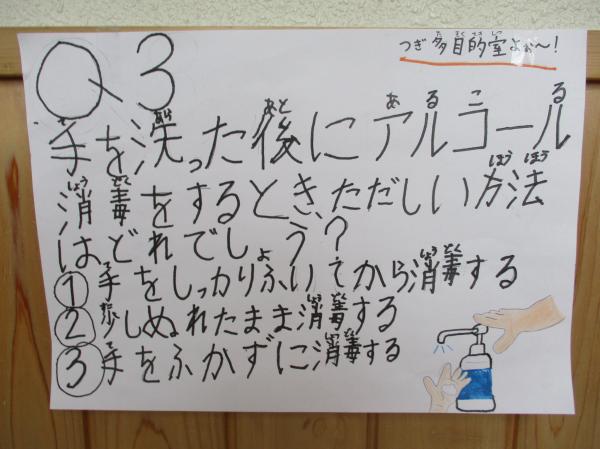 つぎ多目的室よぉ〜!
Q3
手を洗った後にアルコール
消毒をするとき、ただしい方法
はどれでしょう?
①手をしっかりふいてから消毒する
②少しぬれたまま消毒する
③手をふかずに消毒する